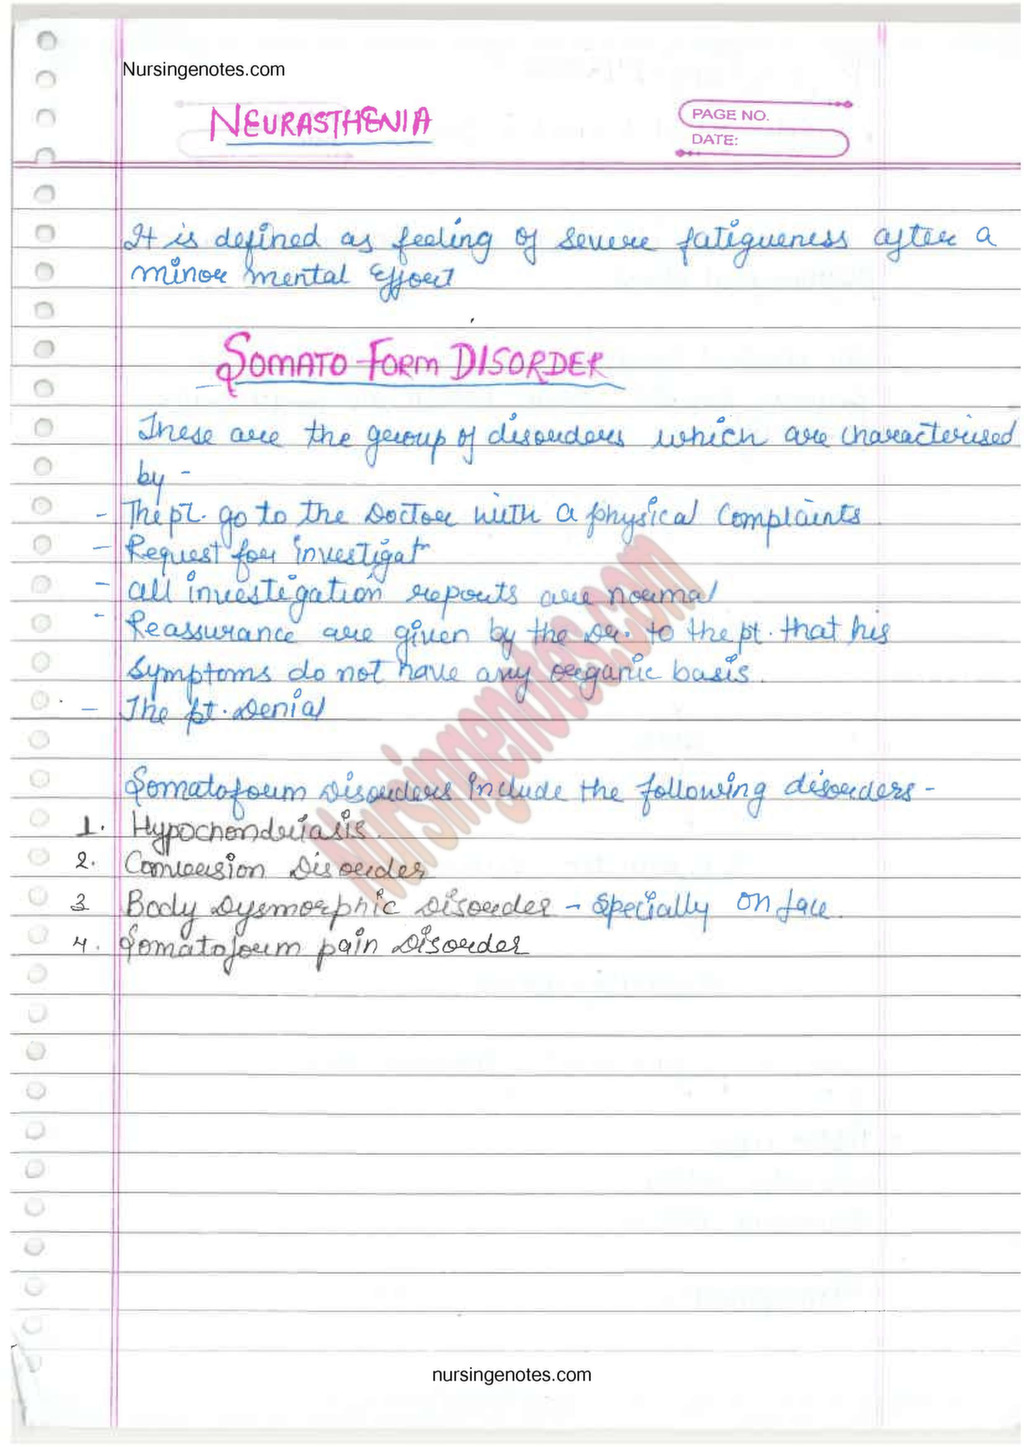 Nursingenotes.com
NEURASTHENIA
PAGE NO.
DATE:
It is defined as feeling of severe fatigueness after a
minor mental Effort
SOMATO FORM DISORDER
These are the group of disorders which are characterised
by -
- The pt. go to the Doctor with a physical Complaints
- Request for investigatn
- all investigation reports are normal
- Reassurance are given by the Dr. to the pt. that his
symptoms do not have any organic basis.
- The pt. Denial
Somatoform Disorders Include the following disorders -
1. Hypochondriasis.
2. Conversion Disorder
3 Body Dysmorphic Disorder - Specially on face.
4. Somatoform pain Disorder
Nursingenotes.com
nursingenotes.com